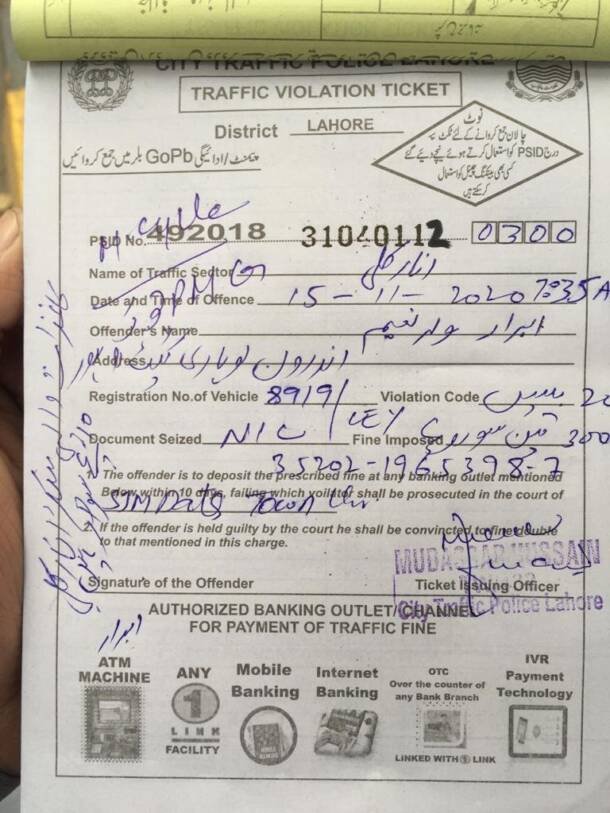 CITY TRAFFIC POLICE LAHORE
TRAFFIC VIOLATION TICKET
District LAHORE
نوٹ
چالان جمع کروانے کے لئے ٹکٹ پر
درج PSID کو استعمال کرتے ہوئے نیچے دیئے گئے
کسی بھی بینکنگ چینل کا استعمال
کر سکتے ہیں
پیمنٹ/ادائیگی GoPb بلر میں جمع کروائیں
M cycle
PSID No. 492018 31040112 0300
Name of Traffic Sector انارکلی
Date and Time of Offence 15-11-2020 7:35A
Offender's Name ابرار ولد نعیم
Address اندرون لوہاری گیٹ لاہور
Registration No.of Vehicle 8919/ LEY Violation Code بیس 20
Document Seized NIC Fine Imposed تین سو روپے 300
35202-1965398-7
1. The offender is to deposit the prescribed fine at any banking outlet mentioned
Below within 10 days, failing which voilator shall be prosecuted in the court of
SJM Data Town Lhr
2. If the offender is held guilty by the court he shall be convicted to fine double
to that mentioned in this charge.
MUDASSAR HUSSAIN
City Traffic Police Lahore
Signature of the Offender Ticket Issuing Officer
ابرار
AUTHORIZED BANKING OUTLET/CHANNEL
FOR PAYMENT OF TRAFFIC FINE
ATM MACHINE
ANY 1 LINK FACILITY
Mobile Banking
Internet Banking
OTC
Over the counter of
any Bank Branch
LINKED WITH 1 LINK
IVR
Payment
Technology